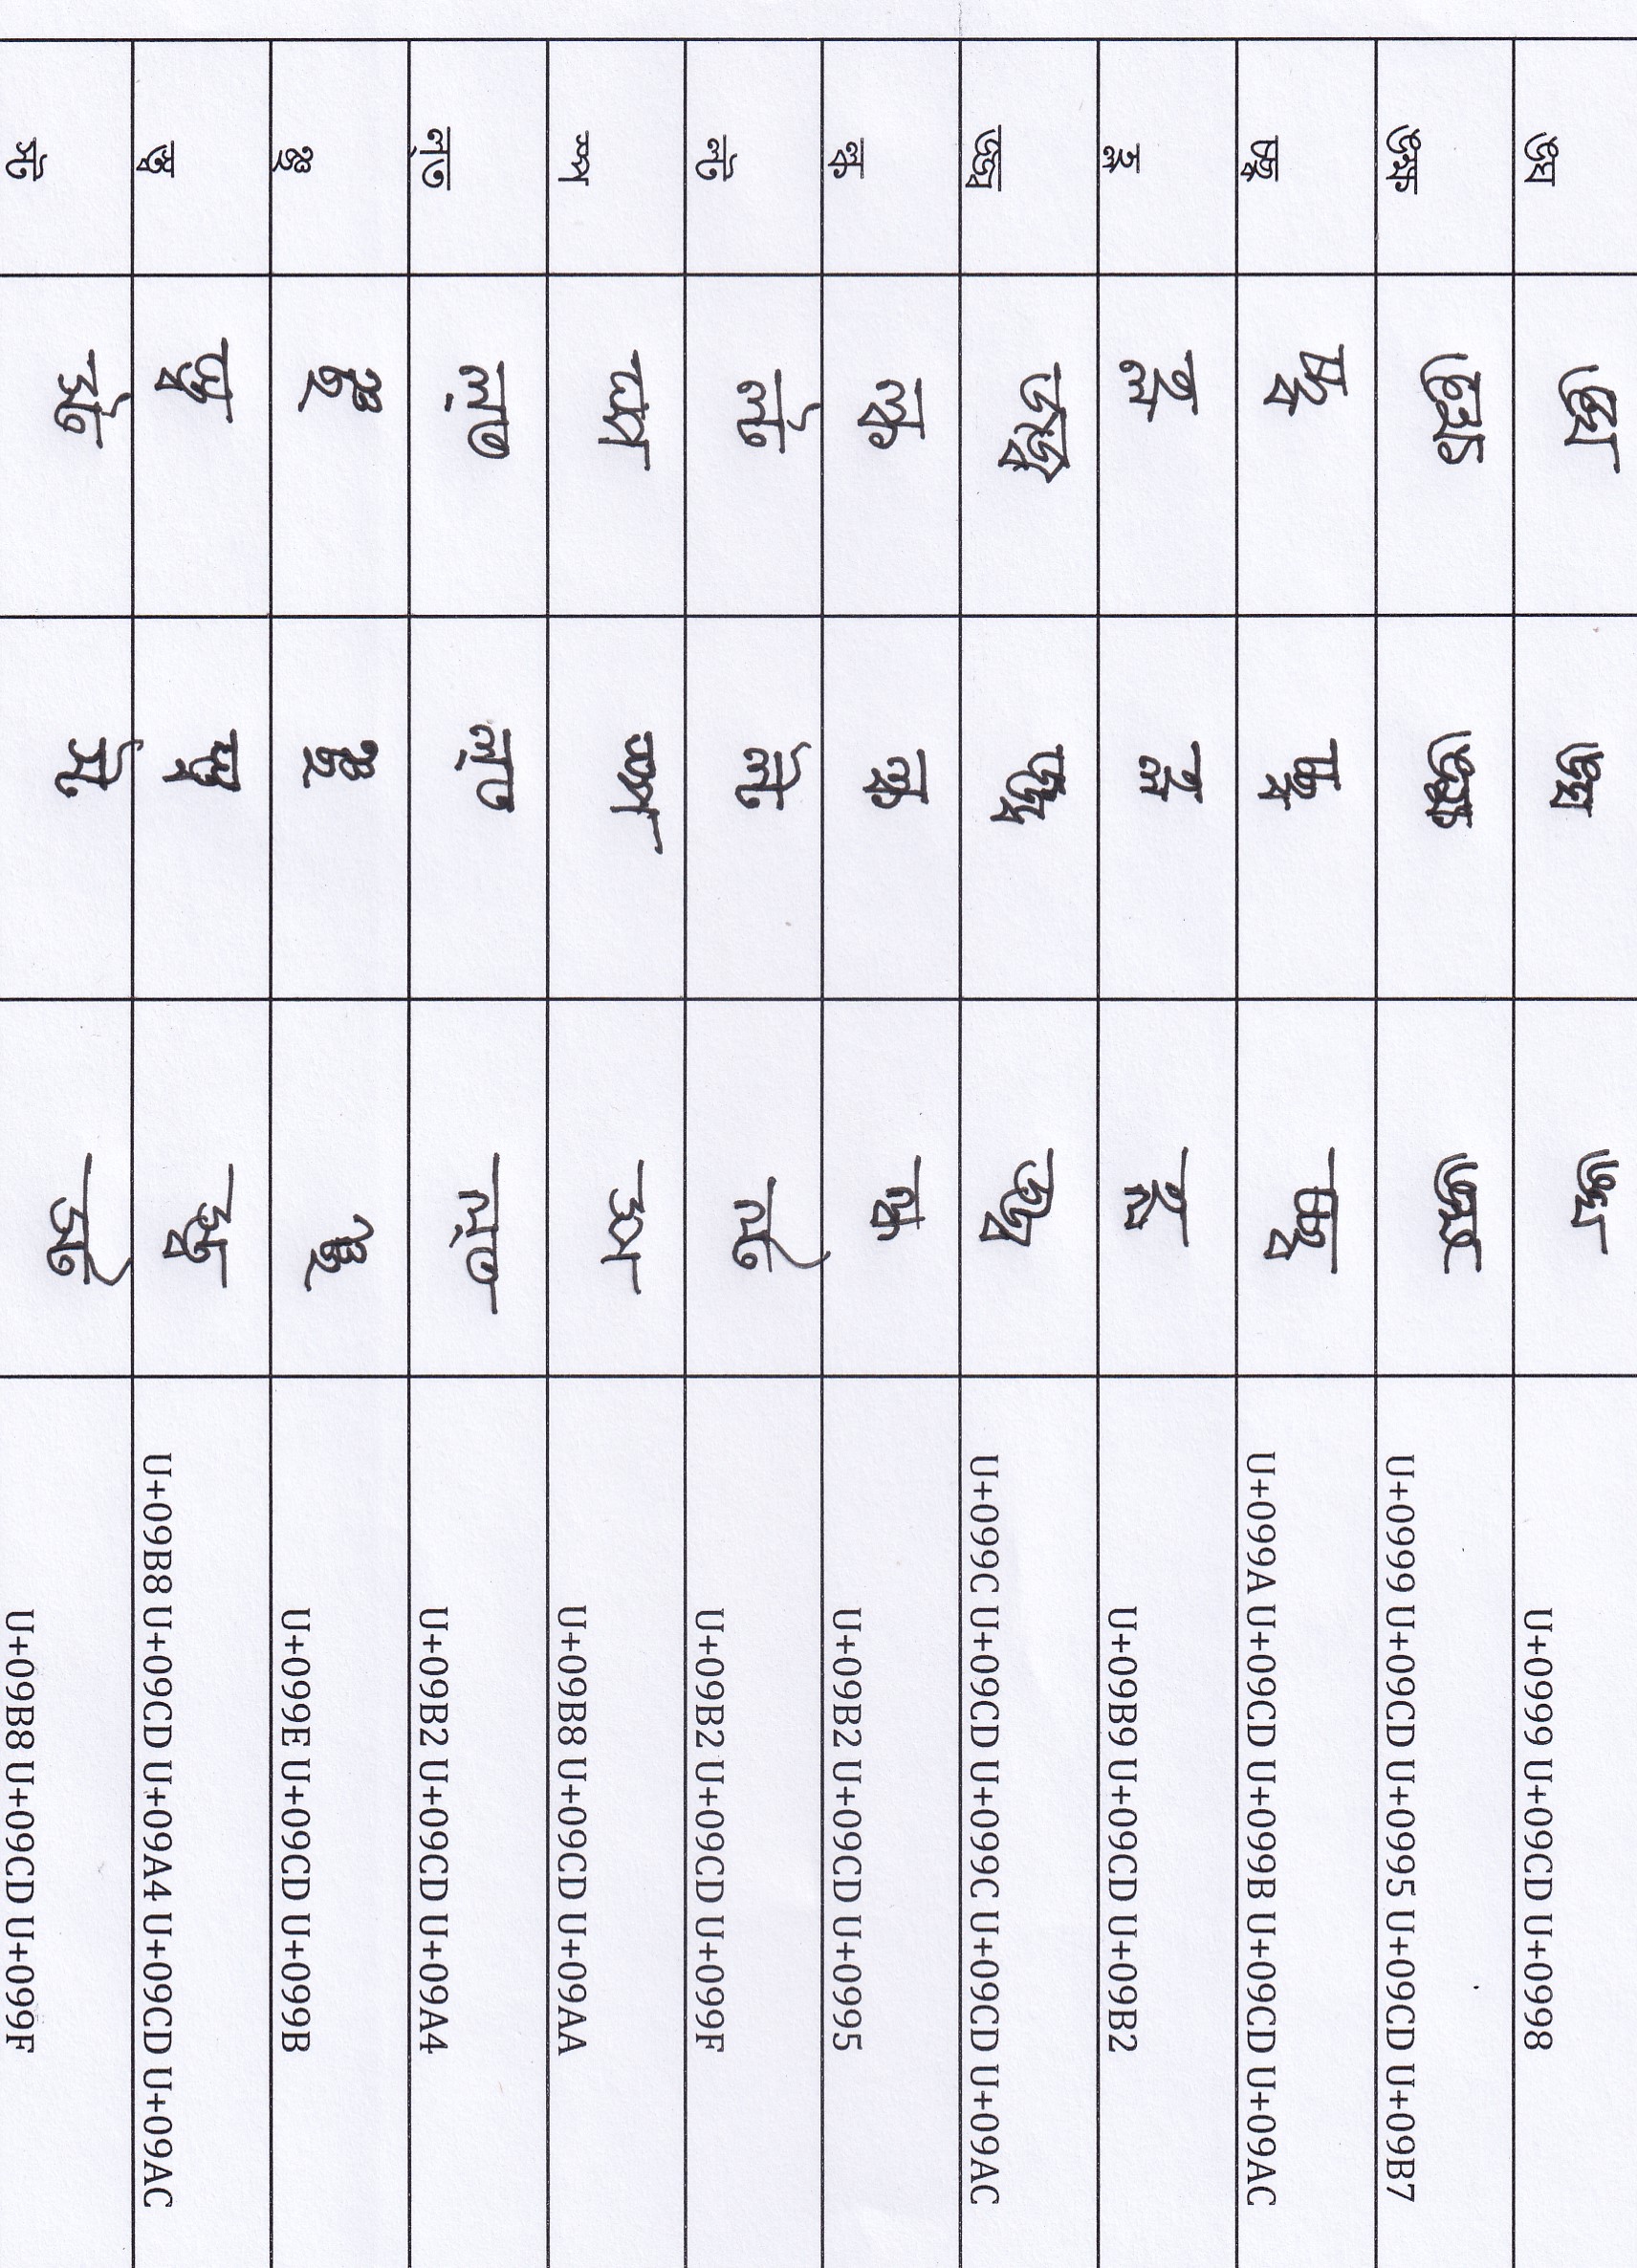 ঙ্ঘ ঙ্ঘ ঙ্ঘ ঙ্ঘ U+0999 U+09CD U+0998
ঙ্ক্ষ ঙ্ক্ষ ঙ্ক্ষ ঙ্ক্ষ U+0999 U+09CD U+0995 U+09CD U+09B7
চ্ছ্ব চ্ছ্ব চ্ছ্ব চ্ছ্ব U+099A U+09CD U+099B U+09CD U+09AC
হ্ল হ্ল হ্ল হ্ল U+09B9 U+09CD U+09B2
জ্জ্ব জ্জ্ব জ্জ্ব জ্জ্ব U+099C U+09CD U+099C U+09CD U+09AC
ল্ক ল্ক ল্ক ল্ক U+09B2 U+09CD U+0995
ল্ট ল্ট ল্ট ল্ট U+09B2 U+09CD U+099F
স্প স্প স্প স্প U+09B8 U+09CD U+09AA
ল্ত ল্ত ল্ত ল্ত U+09B2 U+09CD U+09A4
ঞ্ছ ঞ্ছ ঞ্ছ ঞ্ছ U+099E U+09CD U+099B
স্ত্ব স্ত্ব স্ত্ব স্ত্ব U+09B8 U+09CD U+09A4 U+09CD U+09AC
স্ট স্ট স্ট স্ট U+09B8 U+09CD U+099F